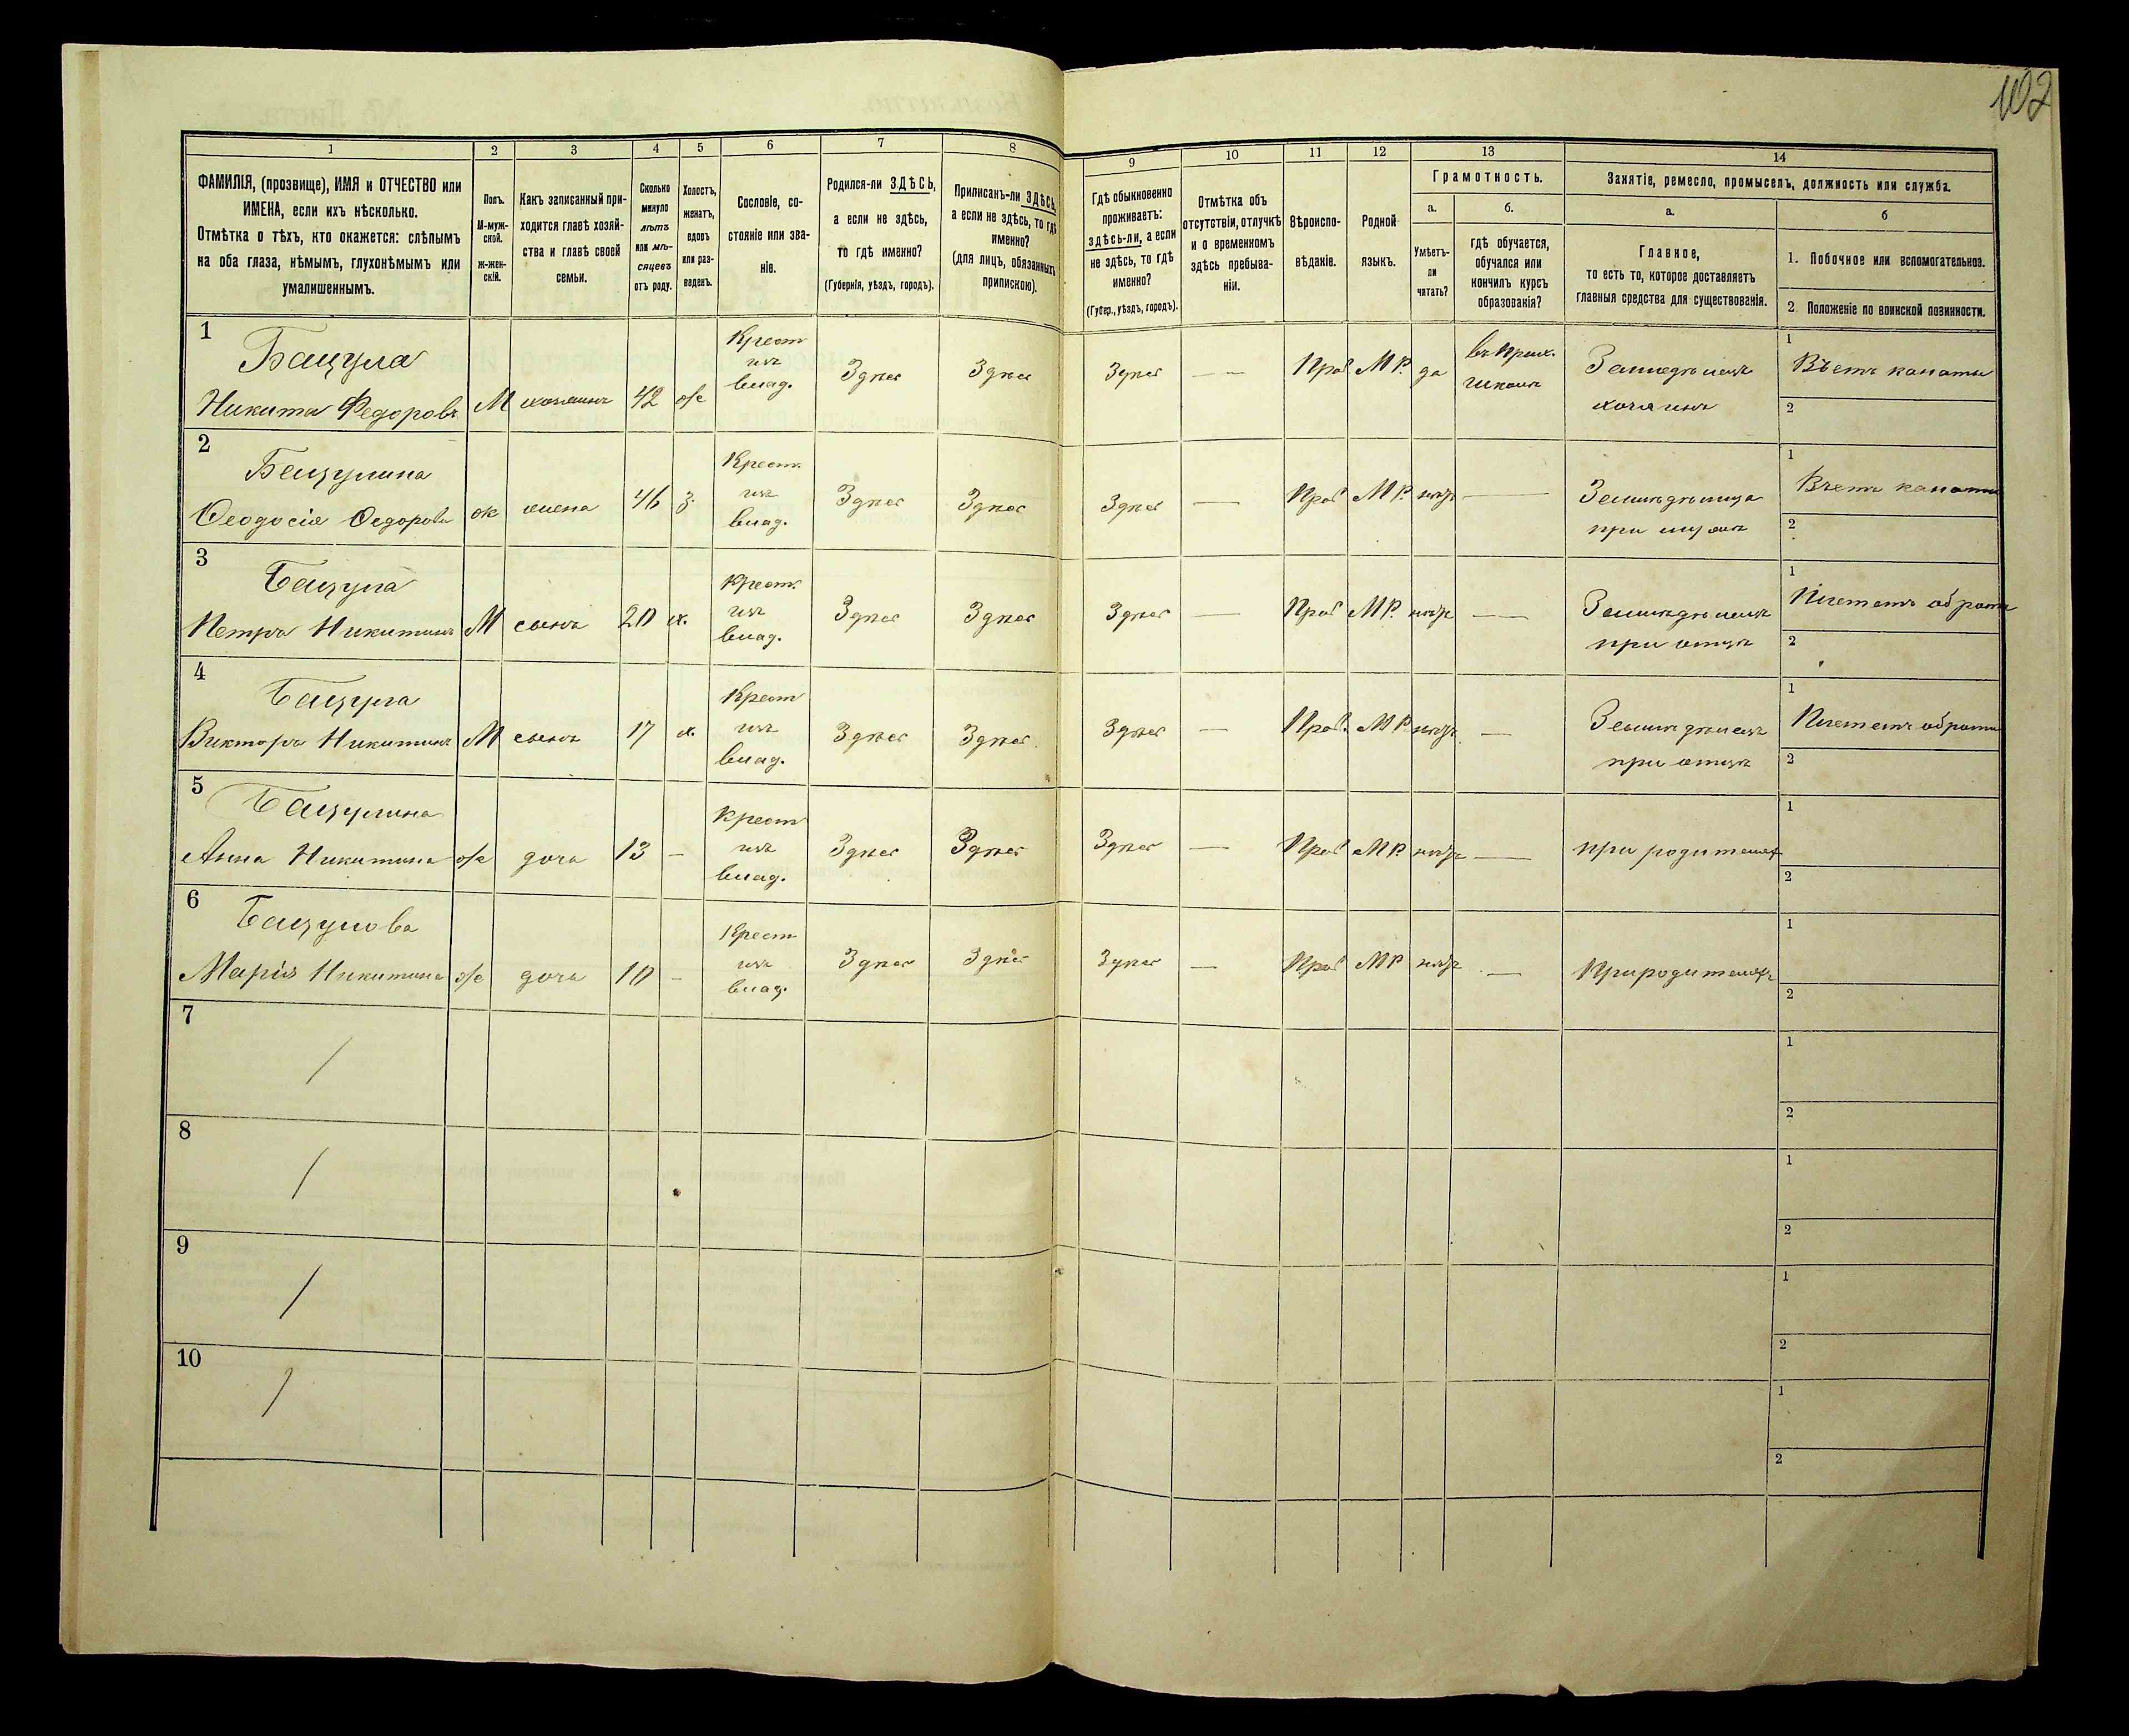 102
1 2 3 4 5 6 7 8 9 10 11 12 13 14
ФАМИЛІЯ, (прозвище), ИМЯ и ОТЧЕСТВО или
ИМЕНА, если ихъ нѣсколько.
Отмѣтка о тѣхъ, кто окажется: слѣпымъ
на оба глаза, нѣмымъ, глухонѣмымъ или
умалишеннымъ.
Полъ.
М-муж-
ской.
ж-жен-
скій.
Какъ записанный при-
ходится главѣ хозяй-
ства и главѣ своей
семьи.
Сколько
минуло
лѣтъ
или мѣ-
сяцевъ
отъ роду.
Холостъ,
женатъ,
вдовъ
или раз-
веденъ.
Сословіе, со-
стояніе или зва-
ніе.
Родился-ли ЗДѢСЬ,
а если не здѣсь,
то гдѣ именно?
(Губернія, уѣздъ, городъ).
Приписанъ-ли ЗДѢСЬ,
а если не здѣсь, то гдѣ
именно?
(для лицъ, обязанныхъ
припискою).
Гдѣ обыкновенно
проживаетъ:
здѣсь-ли, а если
не здѣсь, то гдѣ
именно?
(Губер., уѣздъ, городъ).
Отмѣтка объ
отсутствіи, отлучкѣ
и о временномъ
здѣсь пребыва-
ніи.
Вѣроиспо-
вѣданіе.
Родной
языкъ.
Грамотность.
а.
Умѣетъ-
ли
читать?
б.
гдѣ обучается,
обучался или
кончилъ курсъ
образованія?
Занятіе, ремесло, промыселъ, должность или служба.
а.
Главное,
то есть то, которое доставляетъ
главныя средства для существованія.
б
1. Побочное или вспомогательное.
2. Положеніе по воинской повинности.
1
Бацула
Никита Федоровъ
М
хозяинъ
42
ж
Крест
изъ
влад.
Здѣсь
Здѣсь
Здѣсь
— —
Прав
М Р.
да
въ Прих.
школѣ
Земледѣлецъ
хозяинъ
1
Вьетъ канаты
2
2
Бацулина
Феодосія Федорова
ж
жена
46
з.
Крест.
изъ
влад.
Здѣсь
Здѣсь
Здѣсь
—
Прав
М Р.
нѣтъ
—
Земледѣлица
при мужѣ
1
Вьетъ канаты
2
3
Бацула
Петръ Никитинъ
М
сынъ
20
х.
Крест.
изъ
влад.
Здѣсь
Здѣсь
Здѣсь
—
Прав
М Р.
нѣтъ
—
Земледѣлецъ
при отцѣ
1
Плететъ оброти
2
4
Бацула
Викторъ Никитинъ
М
сынъ
17
х.
Крест
изъ
влад.
Здѣсь
Здѣсь
Здѣсь
—
Прав.
М Р
нѣтъ
—
Земледѣлецъ
при отцѣ
1
Плететъ оброти
2
5
Бацулина
Анна Никитина
ж
дочь
13
—
Крест
изъ
влад.
Здѣсь
Здѣсь
Здѣсь
—
Прав
М Р.
нѣтъ
—
при родителях
1
2
6
Бацулова
Марія Никитина
ж
дочь
10
-
Крест
изъ
влад.
Здѣсь
Здѣсь
Здѣсь
—
Прав
М Р
нѣтъ
—
При родителяхъ
1
2
7
/
1
2
8
/
1
2
9
/
1
2
10
/
1
2